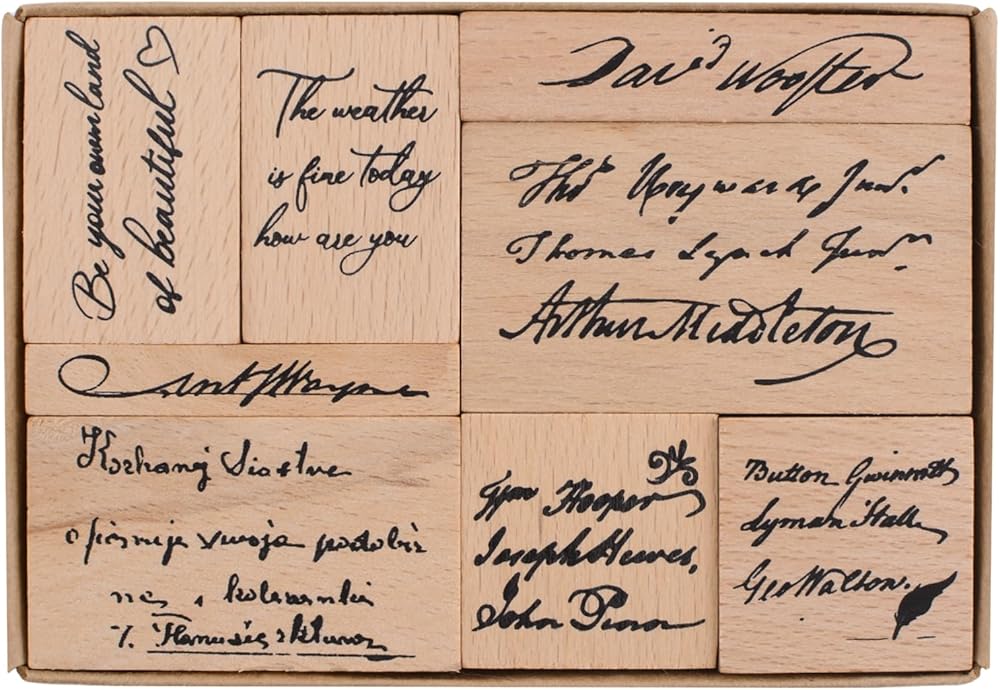 Be your own land
of beautiful
The weather
is fine today
how are you
David Wooster
Tho.s Heyward Jun.r
Thomas Lynch Jun.r
Arthur Middleton
Ant.y Wayne
Kochanej Siostrze
swoje
Wm Hooper
Joseph Hewes,
John Penn
Button Gwinnett
Lyman Hall
Geo Walton.